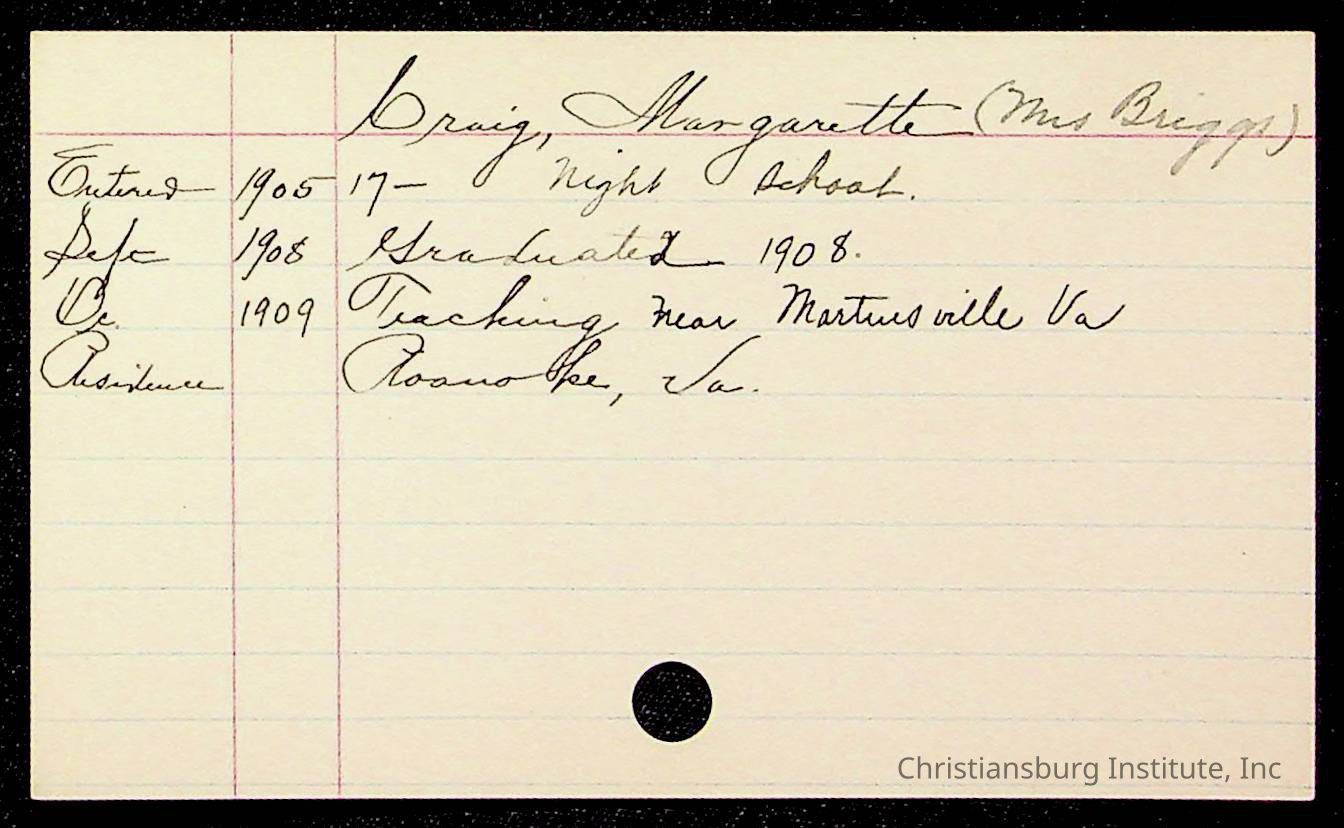 Craig, Margarette (Mrs Briggs)
Entered 1905 17- Night School.
Left 1908 Graduated 1908.
Oc. 1909 Teaching near Martinsville Va
Residence Roanoke, Va.
Christiansburg Institute, Inc